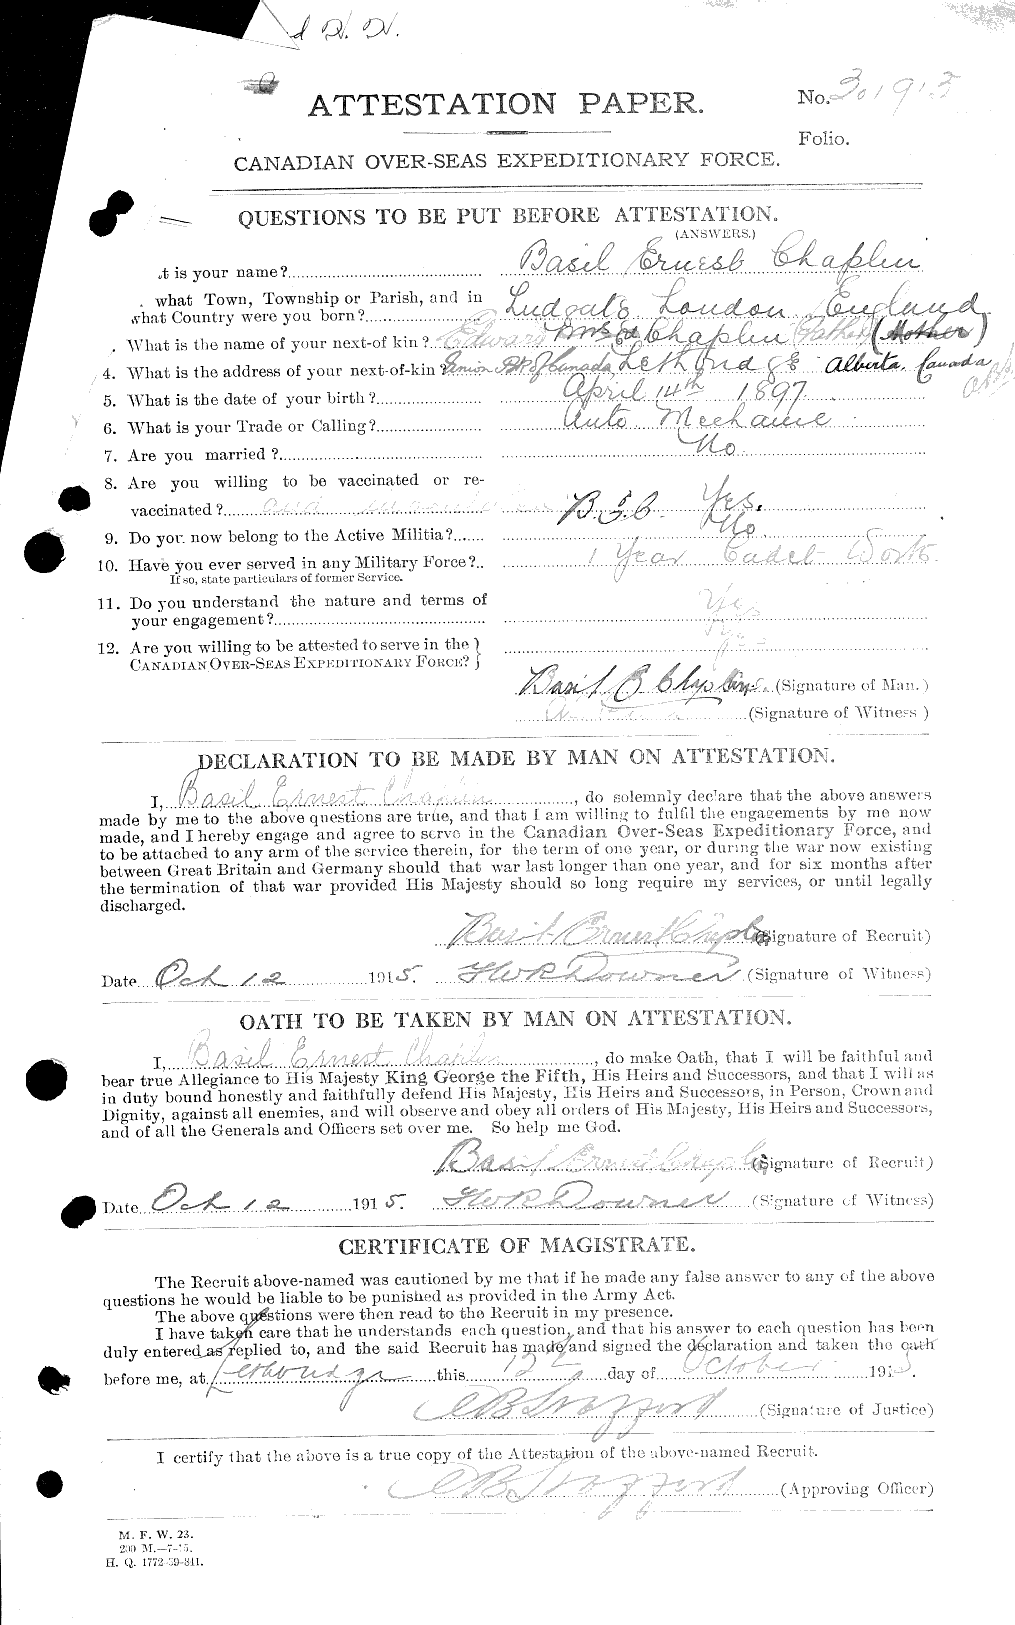 d D. D.
ATTESTATION PAPER.
No. 301913
Folio.
CANADIAN OVER-SEAS EXPEDITIONARY FORCE.
QUESTIONS TO BE PUT BEFORE ATTESTATION.
(ANSWERS.)
.t is your name? Basil Ernest Chaplin
what Town, Township or Parish, and in
what Country were you born? Ludgate London England
What is the name of your next-of kin? Edward Mrs Chaplin (Father) (Mother)
4. What is the address of your next-of-kin? Union Bk of Canada, Lethbridge Alberta, Canada
5. What is the date of your birth? April 14th 1897
6. What is your Trade or Calling? Auto Mechanic
7. Are you married? No
8. Are you willing to be vaccinated or re-
vaccinated? B.E.C. Yes.
9. Do you now belong to the Active Militia? No
10. Have you ever served in any Military Force? 1 Year Cadet Work
If so, state particulars of former Service.
11. Do you understand the nature and terms of
your engagement? Yes
12. Are you willing to be attested to serve in the
CANADIAN OVER-SEAS EXPEDITIONARY FORCE? Yes
Basil E Chaplin. (Signature of Man.)
(Signature of Witness)
DECLARATION TO BE MADE BY MAN ON ATTESTATION.
I, Basil Ernest Chaplin, do solemnly declare that the above answers
made by me to the above questions are true, and that I am willing to fulfil the engagements by me now
made, and I hereby engage and agree to serve in the Canadian Over-Seas Expeditionary Force, and
to be attached to any arm of the service therein, for the term of one year, or during the war now existing
between Great Britain and Germany should that war last longer than one year, and for six months after
the termination of that war provided His Majesty should so long require my services, or until legally
discharged.
Basil Ernest Chaplin (Signature of Recruit)
Date Oct 12 1915. HWR Downer (Signature of Witness)
OATH TO BE TAKEN BY MAN ON ATTESTATION.
I, Basil Ernest Chaplin, do make Oath, that I will be faithful and
bear true Allegiance to His Majesty King George the Fifth, His Heirs and Successors, and that I will as
in duty bound honestly and faithfully defend His Majesty, His Heirs and Successors, in Person, Crown and
Dignity, against all enemies, and will observe and obey all orders of His Majesty, His Heirs and Successors,
and of all the Generals and Officers set over me. So help me God.
Basil Ernest Chaplin (Signature of Recruit)
Date Oct 12 1915. HWR Downer (Signature of Witness)
CERTIFICATE OF MAGISTRATE.
The Recruit above-named was cautioned by me that if he made any false answer to any of the above
questions he would be liable to be punished as provided in the Army Act.
The above questions were then read to the Recruit in my presence.
I have taken care that he understands each question, and that his answer to each question has been
duly entered as replied to, and the said Recruit has made and signed the declaration and taken the oath
before me, at Lethbridge this 12th day of October 1915.
(Signature of Justice)
I certify that the above is a true copy of the Attestation of the above-named Recruit.
(Approving Officer)
M. F. W. 23.
200 M.—7-15.
H. Q. 1772-39-841.